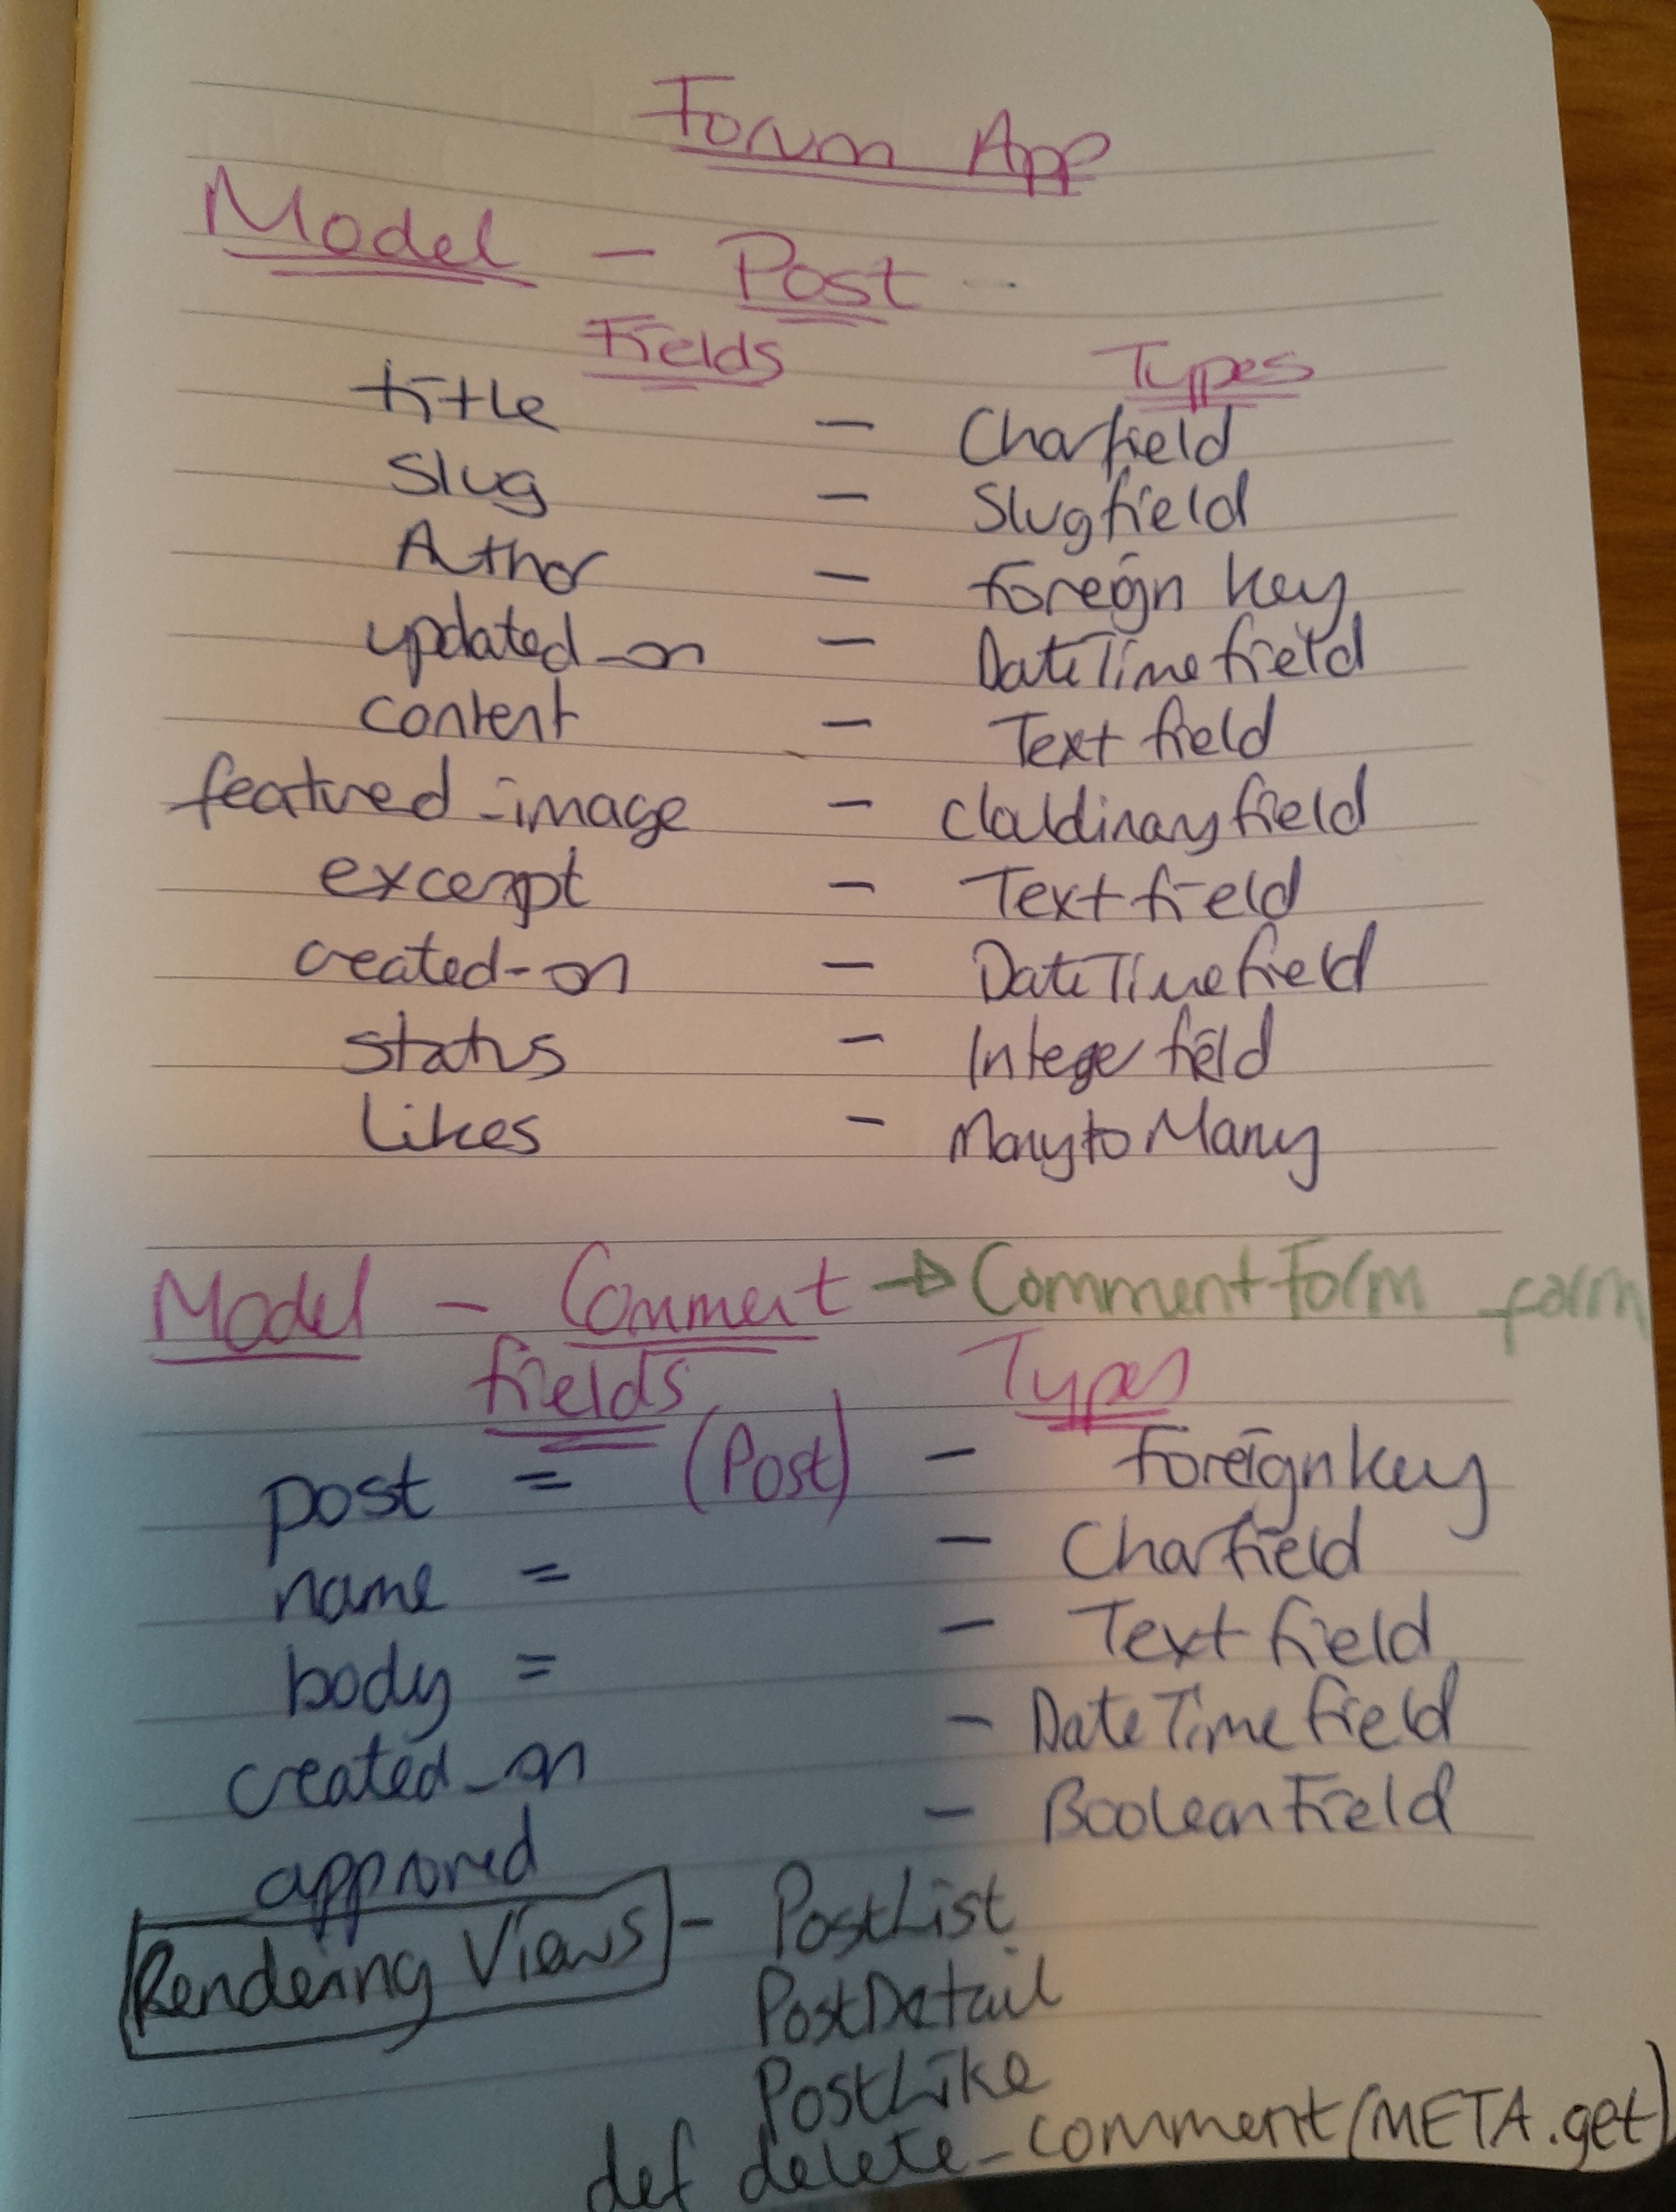 Forum App
Model - Post
Fields Types
title - Charfield
Slug - Slugfield
Author - foreign key
updated_on - DateTimefield
content - Text field
featured_image - Clouldinaryfield
excerpt - Textfield
created-on - DateTimefield
status - Integerfield
Likes - ManytoMany
Model - Comment → CommentForm form
fields Types
post = (Post) - foreignkey
name = - Charfield
body = - Textfield
created_on - DateTimefield
approved - BooleanField
Rendering Views - PostList
PostDetail
PostLike
def delete_comment(META.get)